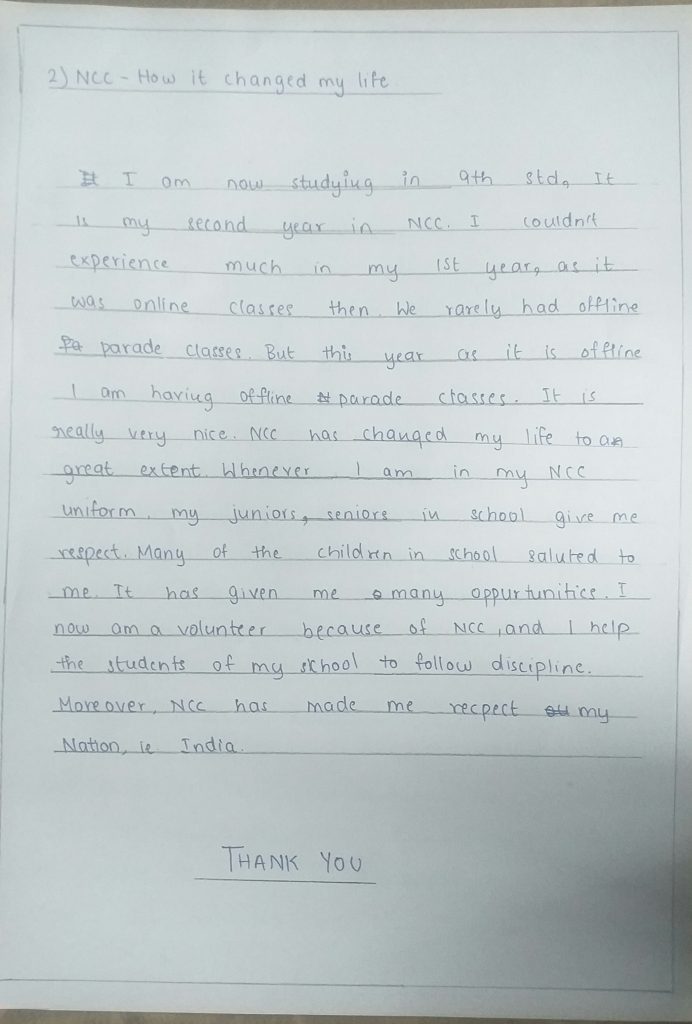 2) NCC - How it changed my life
I am now studying in 9th std, It
is my second year in NCC. I couldn't
experience much in my 1st year, as it
was online classes then. We rarely had offline
parade classes. But this year as it is offline
I am having offline parade classes. It is
really very nice. NCC has changed my life to a
great extent. Whenever I am in my NCC
uniform, my juniors, seniors in school give me
respect. Many of the children in school saluted to
me. It has given me many oppurtunities. I
now am a volunteer because of NCC, and I help
the students of my school to follow discipline.
Moreover, NCC has made me recpect my
Nation, ie India.
THANK YOU